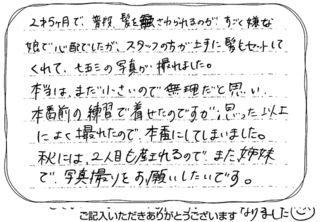 2才5ヶ月で、普段、髪をさわられるのが、すごく嫌な
娘で心配でしたが、スタッフの方が上手に髪をセットして
くれて、七五三の写真が撮れました。
本当は、まだ小さいので無理だと思い
本番前の練習で着せたのですが、思った以上
によく撮れたので、本番にしてしまいました。
秋には、2人目も産まれるので、また姉妹
で、写真撮りをお願いしたいです。
ご記入いただきありがとうございます
なりました